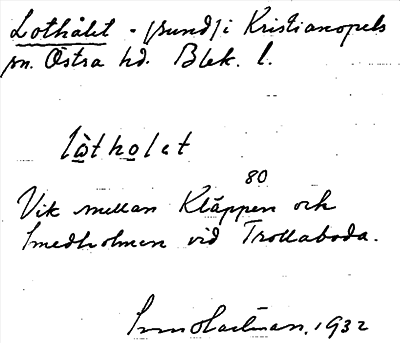 Lothålet - (sund) i Kristianopels
sn. Östra hd. Blek. l.
lo̱tho̱let
80
Vik mellan Kläppen och
Smedholmen vid Trollaboda.
Hartman, 1932